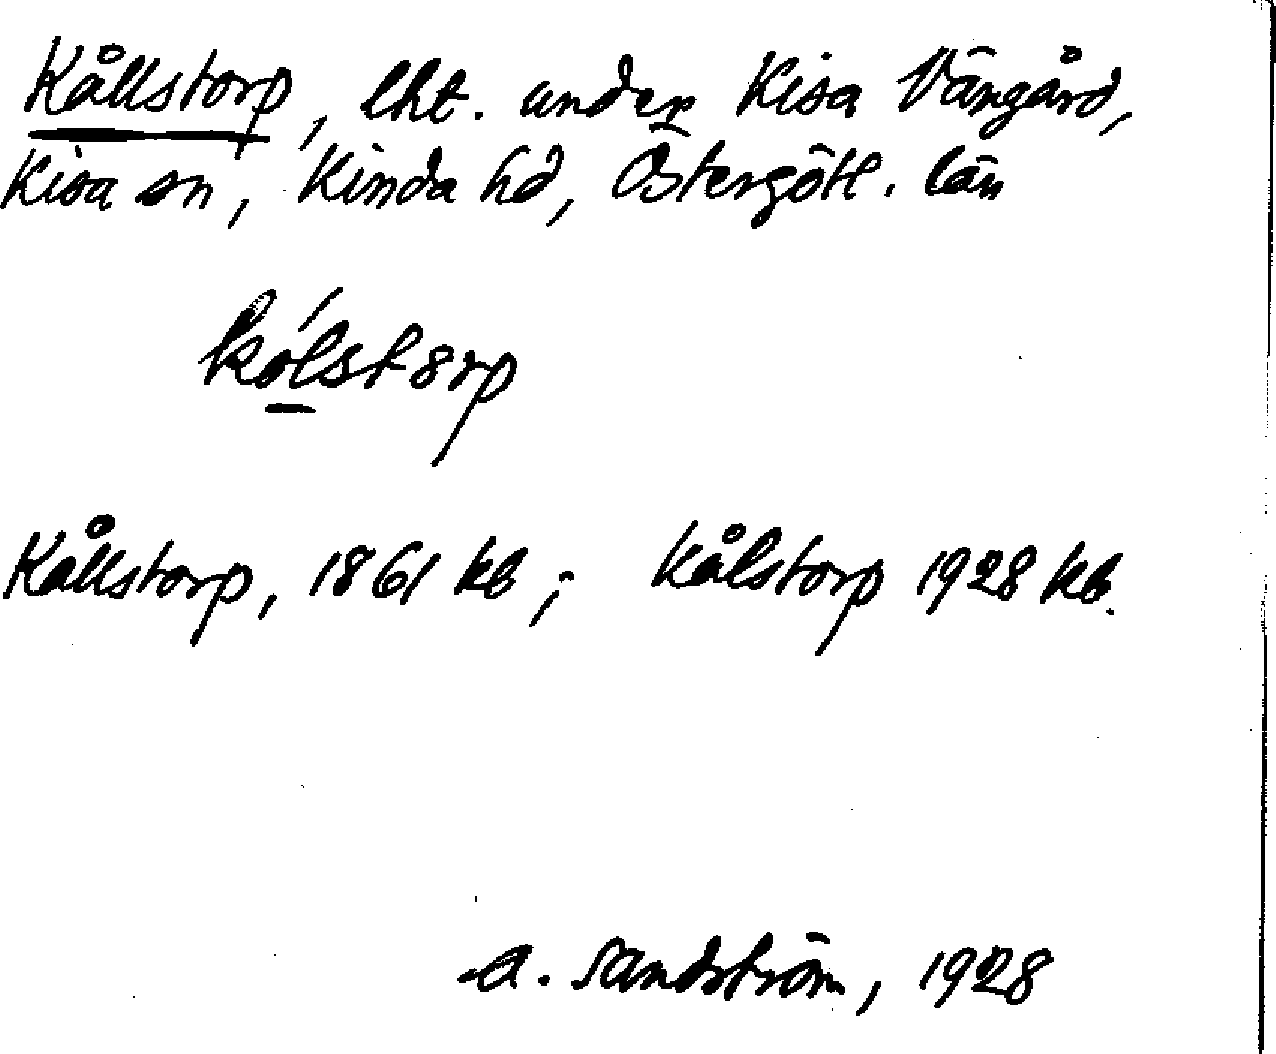 Kållstorp, lht. under Kisa Vängård,
Kisa sn, Kinda hd, Östergötl. län
kólstorp
Kållstorp, 1861 kb; Kålstorp 1928 kb.
A. Sandström, 1928